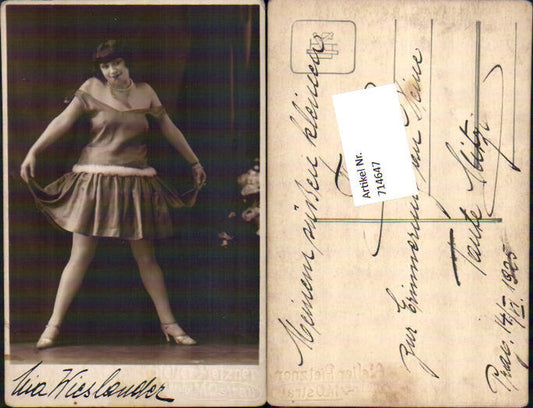 Mia Wieslander
Meinem süßen kleinen
zur Erinnerung an Deine
Tante Mizi
Prag, 14/II 1925
Artikel Nr.
714647
Atelier Pietzner